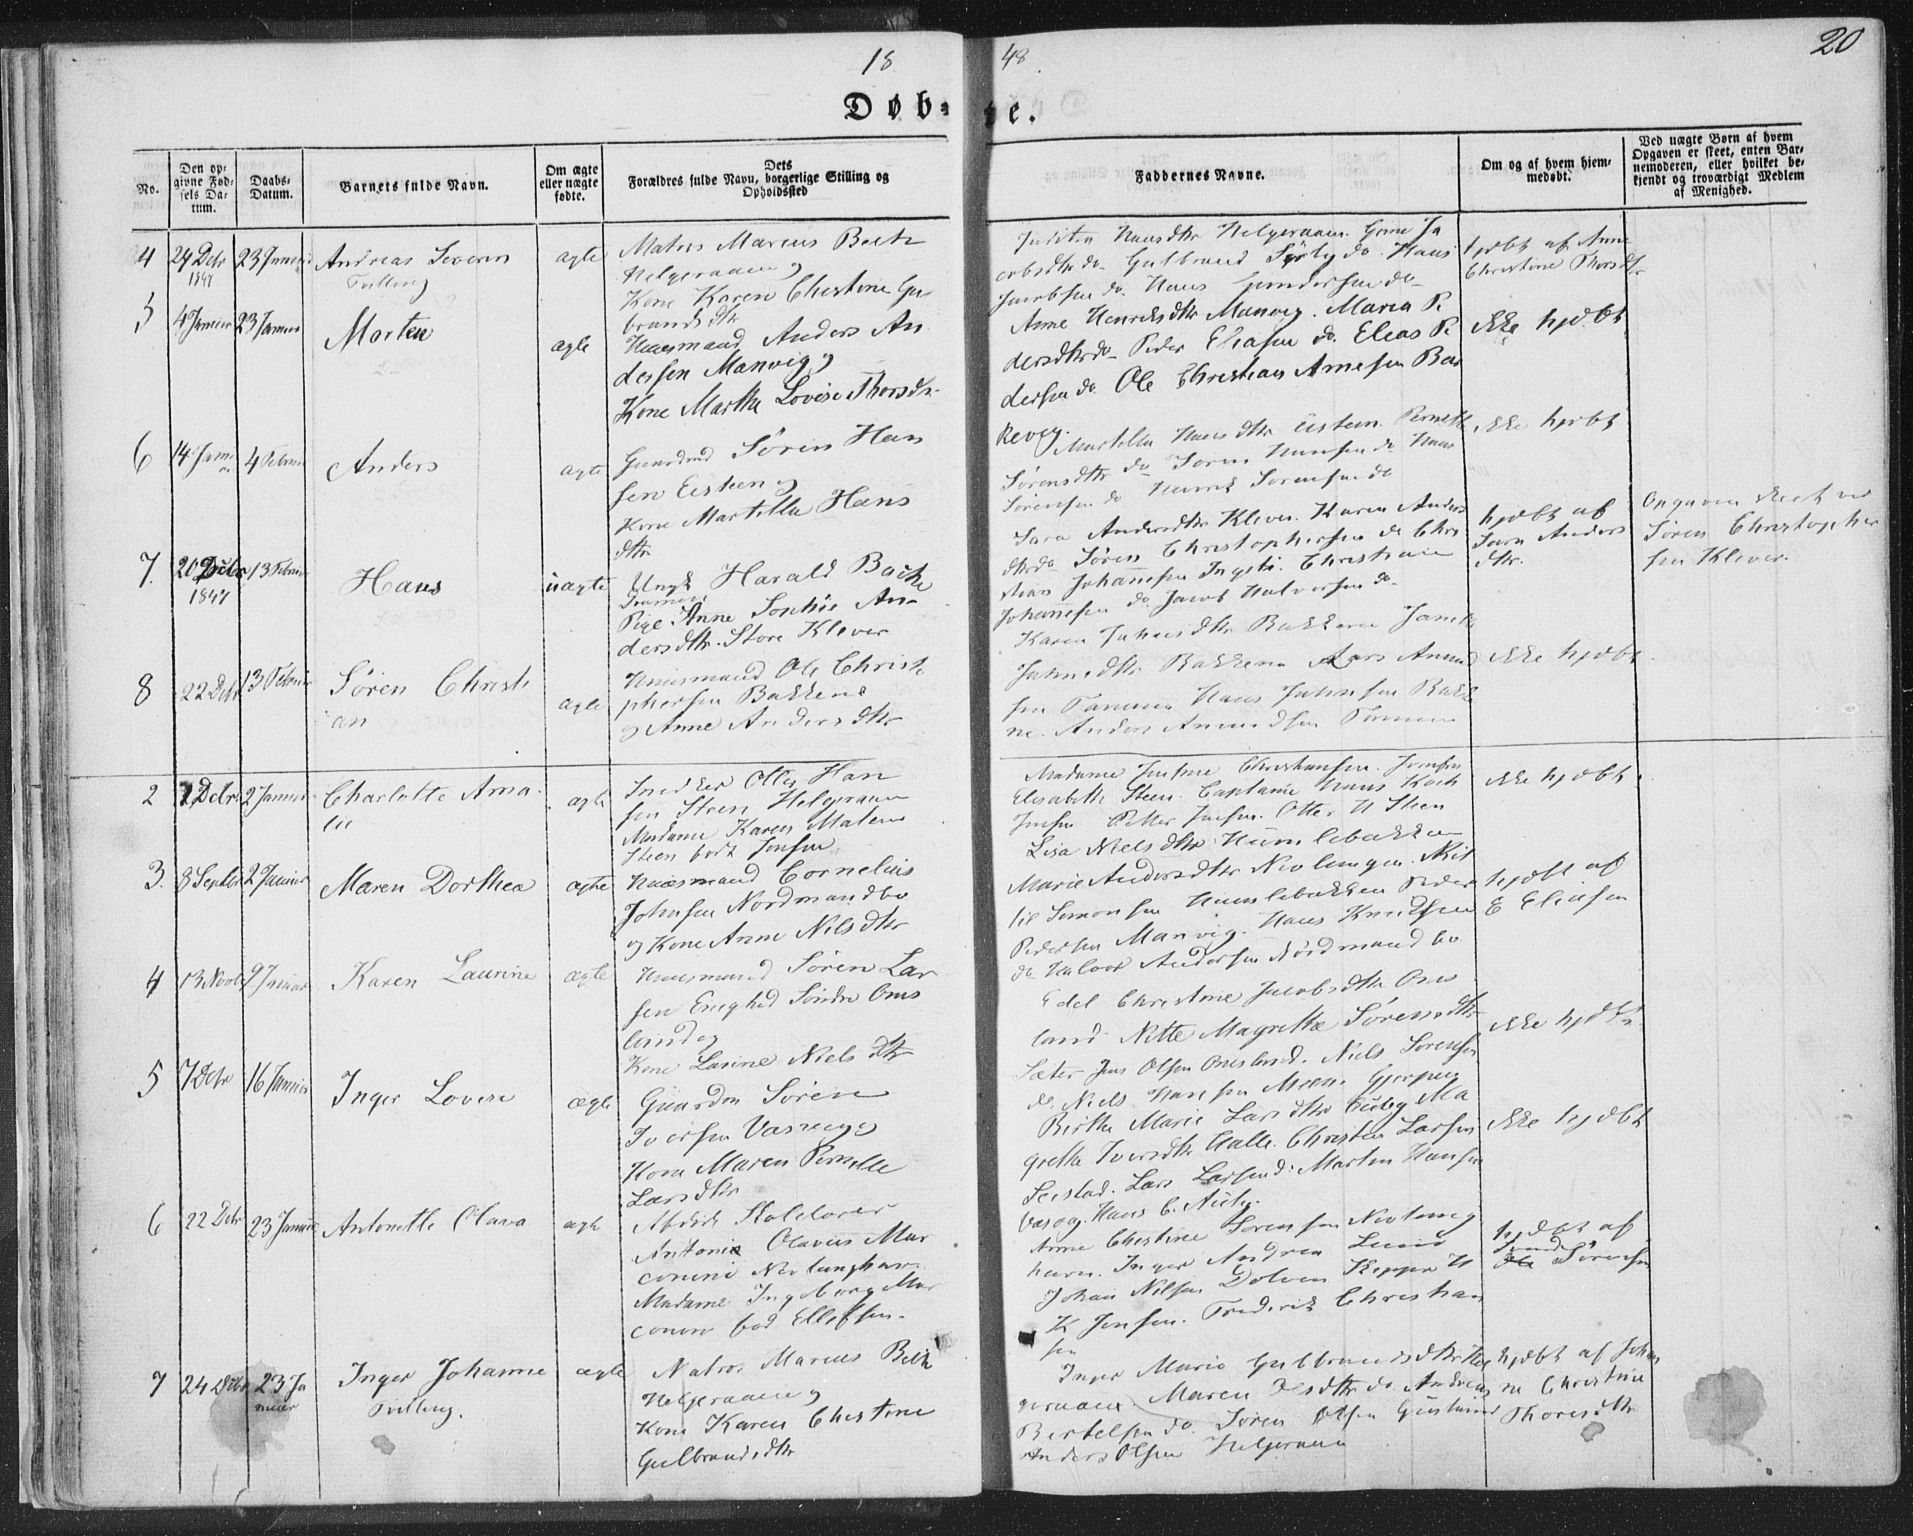 18 48
20
Døb- te.
No.
Den opgivne Fødsels Datum.
Daabs-Datum.
Barnets fulde Navn.
Om ægte eller uægte fødte.
Dets Forældres fulde Navn, borgerlige Stilling og Opholdssted
Faddernes Navne.
Om og af hvem hjemmedøbt.
Ved uægte Børn af hvem Opgaven er skeet, enten Barnemoderen, eller hvilket bekjendt og troværdigt Medlem af Menighed.
4 24 Debr 1847 23 Januar Andreas Severin Tvilling ægte
Matros Marcus Beck
Helgeraaen og
Kone Karen Chistine Gul
brandsdtr
Hansdtr Helgeraaen
Jacobsen do Hans
hjdøbt af Anne
Christine Thorsdtr
5 4 Januar 23 Januar Morten ægte
Huusmand Anders An
dersen Manvig og
Kone Marthe Lovise Thorsdtr
Anne Henriksdtr Manvig. Maren Pe
dersdtr do Peder Eliasen do Elias Pe
dersen do Ole Christian Arnesen Bar
kevig.
ikke hjdøbt
6 14 Janu 4 Februar Anders ægte
Gaardmd Søren Han
sen Eistein og
Kone Martille Hans
dtr
Martella Hansdtr Eistein. Pernille
Sørensdtr do Søren Hansen do Hans
Sørensen do Henrik Sørensen do
ikke hjdøbt
7. 20 Debr 1847 13 Februar Hans uægte
Ungk Harald Bache
Pige Anne Sophie An
dersdtr Store Klever
Sara Andersdtr Klever. Karen Anders
dtr do Søren Christophersen do Chris
tian Johannesen Christian
Johannesen do Jacob Halvorsen do
hjdøbt af
Sara Anders
dtr.
Opgaven skeet ved
Søren Christopher
sen Klever.
8 22 Debr 13 Februar Søren Christi
an ægte
Huusmand Ole Christo
phersen Bakkene
og Anne Andersdtr
Karen Jahnsdtr Bakkene
Jahnsdtr Bakkene Lars Amund
sen Hans Jahnsen Bakke
ne. Anders Amundsen
ikke hjdøbt
2 1 Debr 2 Januar Charlotte Ama
lie ægte
Snedker Otter Han
sen Steen Helgeraaen
Madame Karen Malene
Steen født Jensen
Madame Christiansen. Jomfru
Elisabeth Steen. Captaine Hans Koch
Jensen Petter Jensen. Otter H Steen
ikke hjdøbt.
3. 8 Septbr 2 Januar Maren Dorthea ægte
Huusmand Cornelius
Johnsen Nordmandbo
og Kone Anne Nilsdtr
Lisa Nielsdtr Humlebakken
Marie Andersdtr Nevlungen.
Simonsen Humlebakken Peder
Pedersen Manvig. Hans Knudsen
do Halvor Andersen Nordmandbo
hjdøbt af
E Eliasen
4 13 Novbr 9 Januar Karen Laurine ægte
Huusmand Søren Lar
sen Enighed Søndre Oms
land og
Kone Lasine Nielsdtr
Edel Christine Jacobsdtr Oms
land Nille Magrethe Sørensdtr
Sæter Jens Olsen Omsland. Niels Sørensen
do Niels Hansen
ikke hjdøbt.
5 7 Debr 16 Januar Inger Lovise ægte
Gaardm Søren
Iversen Vasvig og
Kone Maren Pernille
Larsdtr
Birthe Marie Larsdtr Ma
grethe Iversdtr Halle. Christen Larsen
Seistad. Lars Larsen do Martin Hansen
Hans C.
ikke hjdøbt
6 22 Debr 23 Januar Antonette Olava ægte
Skolelærer
Antonie Olavus Mar
conini Nevlunghavn
Madame Ingeborg Mar
conini fød Ellefsen.
Anne Christine Sørensen Nevlung
havn. Inger Andrea Lund
Johan Nilsen Dolven Skipper H
K Jensen. Frederik Christian
sen
hjdøbt af
Sørensen
7 24 Debr 23 Ja
nuar Inger Johanne
Tvilling. ægte
Matros Marcus Beck
Helgeraaen og
Kone Karen Chistine
Gulbrandsdtr
Inger Marie Gulbrandsdtr Hel
geraaen. Maren Olsdtr do Andreas
Bertelsen do Søren Olsen
Anders Olsen Helgeraaen
hjdøbt af Johan
ne Christine
Thorsdtr